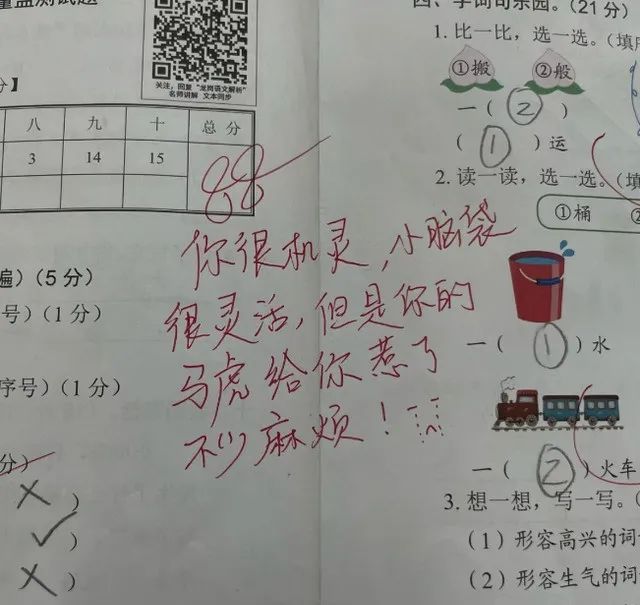 关注，回复"龙岗语文解析"
名师讲解 文本同步
分】
八 九 十 总分
3 14 15
88
你很机灵，小脑袋
很灵活，但是你的
马虎给你惹了
不少麻烦！
遍）（5 分）
号）（1 分）
序号）（1 分）
分）
× ）
✓ ）
× ）
四、字词句乐园。（21 分）
1. 比一比，选一选。（填
①搬 ②般
一（ ② ）
（ ① ）运
2. 读一读，选一选。（填
①桶 ②
一（ ① ）水
一（ ② ）火车
3. 想一想，写一写。（
（1）形容高兴的词
（2）形容生气的词